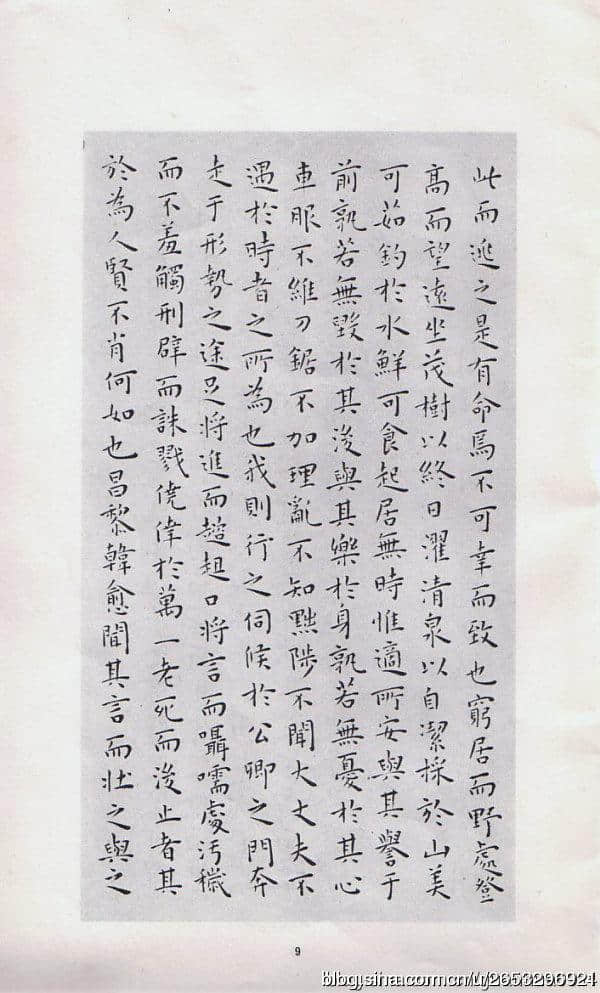 此而逃之是有命焉不可幸而致也窮居而野處登
高而望遠坐茂樹以終日濯清泉以自潔採於山美
可茹釣於水鮮可食起居無時惟適所安與其譽于
前孰若無毀於其後與其樂於身孰若無憂於其心
車服不維刀鋸不加理亂不知黜陟不聞大丈夫不
遇於時者之所為也我則行之伺候於公卿之門奔
走于形勢之途足將進而趑趄口將言而囁嚅處汚穢
而不羞觸刑辟而誅戮僥倖於萬一老死而後止者其
於為人賢不肖何如也昌黎韓愈聞其言而壯之與之
9